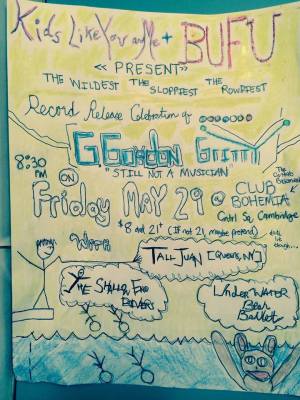 Kids Like You and Me + BUFU
<< PRESENT >>
THE WILDEST THE SLOPPIEST THE ROWDIEST
Record Release Celebration of
G. GORDON GRITTY
"STILL NOT A MUSICIAN"
8:30 PM ON
Friday MAY 29 @ CLUB BOHEMIA
The Cantab Basement
Cntrl Sq. Cambridge
$8 and 21+ (If not 21, maybe pretend)
With
TALL JUAN [QUEENS, NY]
THE SHALLOW END DIVERS
UNDERWATER Bear Ballet